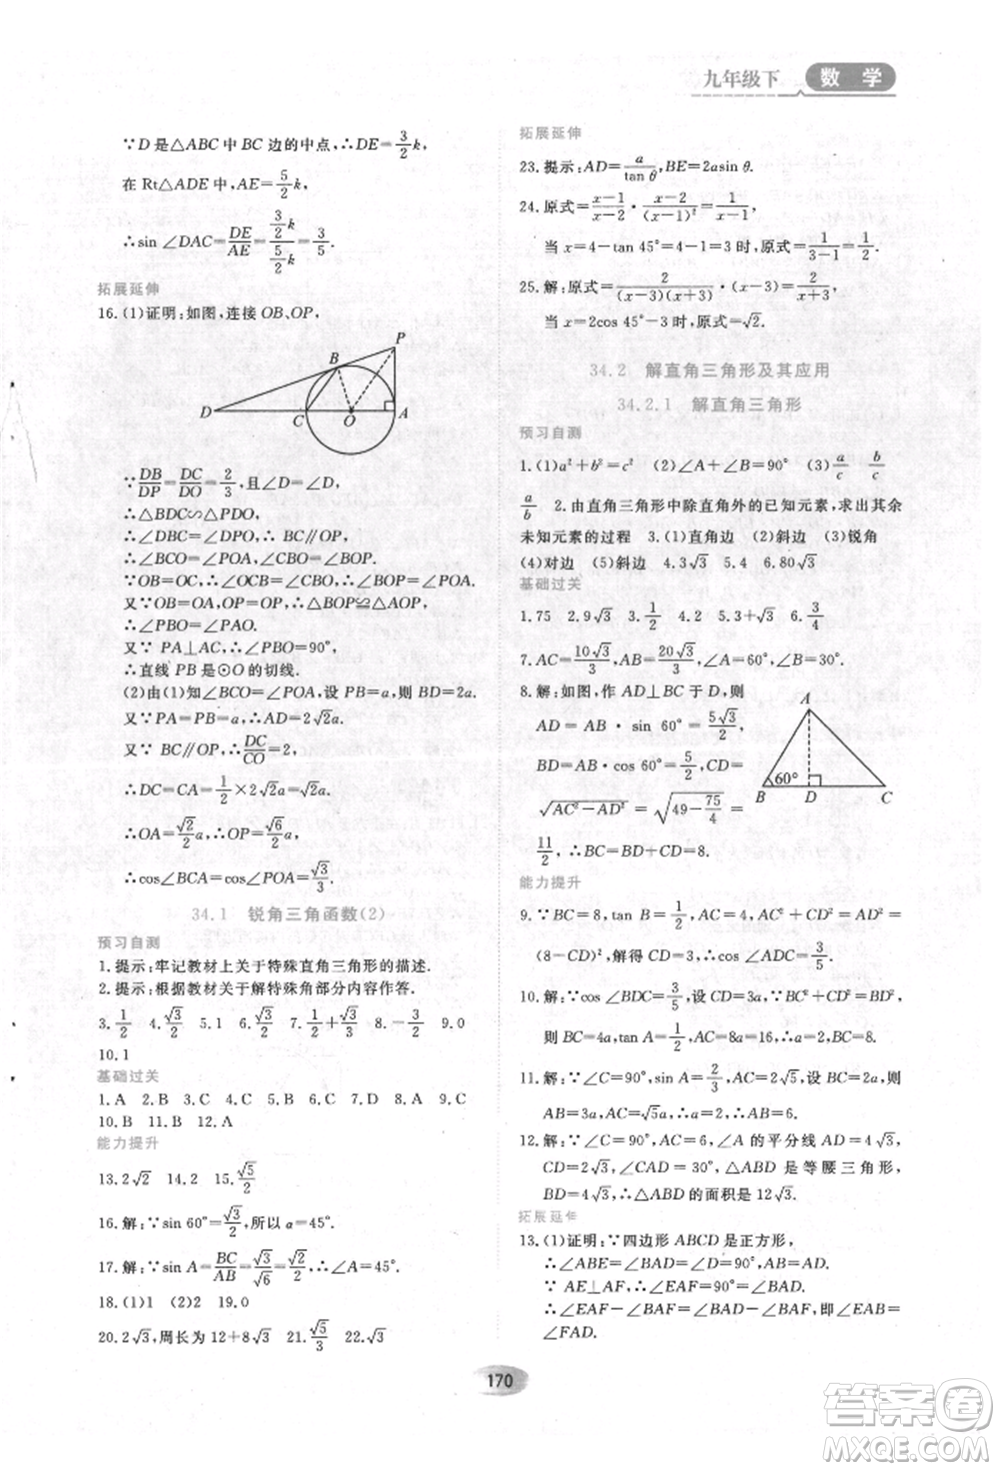 九年级下 数学
∵D是△ABC中BC边的中点,∴DE=3/2k,
在Rt△ADE中,AE=5/2k,
∴sin∠DAC=DE/AE=(3/2k)/(5/2k)=3/5.
拓展延伸
16.(1)证明:如图,连接OB、OP,
P
B
D C O A
∵DB/DP=DC/DO=2/3,∠D=∠D,
∴△BDC∽△PDO,
∴∠DBC=∠DPO,∴BC∥OP,
∴∠BCO=∠POA,∠CBO=∠BOP.
∵OB=OC,∴∠BCO=∠CBO,∴∠BOP=∠POA.
又∵OB=OA,OP=OP,∴△BOP≌△AOP,
∴∠PBO=∠PAO.
又∵PA⊥AC,∴∠PBO=90°,
∴直线PB是⊙O的切线.
(2)由(1)知∠BCO=∠POA,设PB=a,则BD=2a.
又∵PA=PB=a,∴AD=2√2a.
又∵BC∥OP,∴DC/CO=2,
∴DC=CA=1/2×2√2a=√2a,
∴OA=√2/2a,∴OP=√6/2a,
∴cos∠BCA=cos∠POA=√3/3.
34.1 锐角三角函数(2)
预习自测
1.提示:牢记教材上关于特殊直角三角形的描述.
2.提示:根据教材关于解特殊角部分内容作答.
3.1/2 4.√3/2 5.1 6.1/2 7.√3/2 8.-3/2 9.0
10.1
基础过关
1.A 2.B 3.C 4.B 5.C 6.A 7.B 8.D 9.C
10.B 11.B 12.A
能力提升
13.2√2 14.2 15.√5/2
16.解:∵sin 60°=√3/2,所以α=45°.
17.解:∵sin A=BC/AB=√3/√6=√2/2,∴∠A=45°.
18.(1)1 (2)2 19.0
20.2√3,周长为12+8√3 21.√5/3 22.√3
拓展延伸
23.提示:AD=a/tan θ,BE=2asin θ.
24.原式=x-1/x-2·x-2/(x-1)²=1/x-1,
当x=4-tan 45°=4-1=3时,原式=1/3-1=1/2.
25.解:原式=2/(x-3)(x+3)·(x-3)=2/x+3,
当x=2cos 45°-3时,原式=√2.
34.2 解直角三角形及其应用
34.2.1 解直角三角形
预习自测
1.(1)a²+b²=c² (2)∠A+∠B=90° (3)a/c b/c
a/b 2.由直角三角形中除直角外的已知元素,求出其余
未知元素的过程 3.(1)直角边 (2)斜边 (3)锐角
(4)对边 (5)斜边 4.3√3 5.4 6.80√3
基础过关
1.75 2.9√3 3.1/2 4.2 5.3+√3 6.3/4
7.AC=10√3/3,AB=20√3/3,∠A=60°,∠B=30°.
8.解:如图,作AD⊥BC于D,则
AD=AB·sin 60°=5√3/2,
BD=AB·cos 60°=5/2,CD=
√AC²-AD²=√49-75/4=
11/2,∴BC=BD+CD=8.
A
60°
B D C
能力提升
9.∵BC=8,tan B=1/2,∴AC=4,AD²=AC²+
(8-CD)²=16+(8-AD)²,解得CD=3/5.
10.解:∵cos B=3/5,设CD=3a,BD=5a,AC=8a,
则BC=4a,tan A=1/2,AC=8a=16,∴a=2,CD=6.
11.解:∵∠C=90°,sin A=2/3,AC=2√5,设BC=2a,
AB=3a,AC=√5a,∴a=2,AB=6.
12.解:∵∠C=90°,∠B=30°,∠A的平分线AD=4√3,
CD=2√3,∴AC=6,△ABD是等腰三角形,
BD=4√3,∴△ABD的面积是12√3.
拓展延伸
13.(1)证明:∵四边形ABCD是正方形,
∴∠ABC=∠ADC=90°,AB=AD,
∵AE⊥AF,∴∠EAF=90°=∠BAD,
∴∠EAF-∠BAF=∠BAD-∠BAF,即∠EAB=
∠FAD.
170
答案圈
MXQE.COM